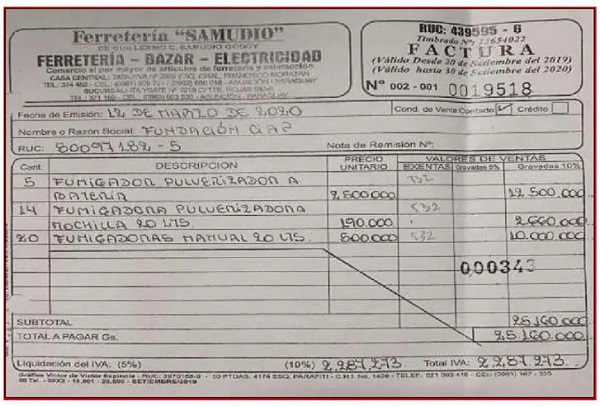 Ferretería "SAMUDIO"
DE GUILLERMO C. SAMUDIO GODOY
FERRETERÍA - BAZAR - ELECTRICIDAD
Comercio al por mayor de artículos de ferretería y calefacción
RUC: 439595 - 6
Timbrado N°: 13654022
FACTURA
(Válido Desde 30 de Setiembre del 2019)
(Válido hasta 30 de Setiembre del 2020)
N° 002 - 001 0019518
Fecha de Emisión: 12 DE MARZO DE 2020
Cond. de Venta Contado Crédito
Nombre o Razón Social: FUNDACIÓN
RUC: 80097182-5 Nota de Remisión N°:
Cant. DESCRIPCION PRECIO UNITARIO VALORES DE VENTAS
EXENTAS Gravadas 5% Gravadas 10%
5 FUMIGADOR PULVERIZADOR A 532
BATERIA 2 500.000 12 500.000
14 FUMIGADORA PULVERIZADORA 532
MOCHILLA 20 LTS. 190.000 2.660.000
20 FUMIGADORAS MANUAL 20 LTS. 500.000 532 10.000.000
000343
SUBTOTAL 25.160.000
TOTAL A PAGAR Gs. 25.160.000
Liquidación del IVA: (5%) (10%) 2,287,273 Total IVA: 2,287,273.